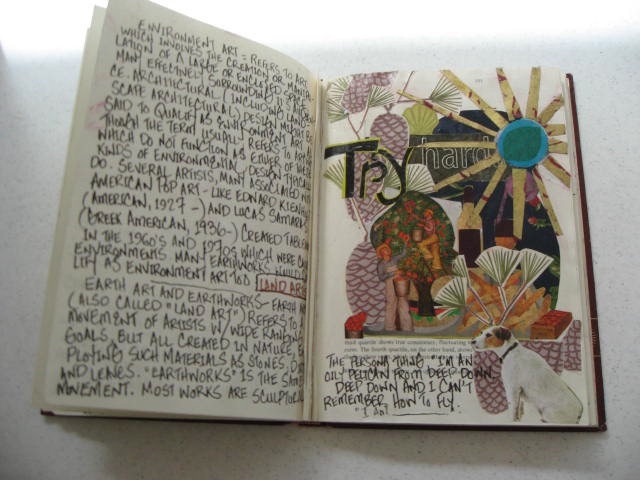 ENVIRONMENT ART = REFERS TO ART
WHICH INVOLVES THE CREATION OR MANIPU-
LATION OF A LARGE OR ENCLOSED SPACE
MANY EFFECTIVELY SURROUNDING
CE. ARCHITECTURAL (INCLUDING LANDS
SCAPE ARCHITECTURAL) DESIGN MIGHT BE
SAID TO QUALIFY AS ENVIRONMENT ART
THOUGH THE TERM USUALLY REFERS TO ART
WHICH DO NOT FUNCTION AS EITHER OF THESE
KINDS OF ENVIRONMENTAL DESIGN TYPICALLY
DO. SEVERAL ARTISTS, MANY ASSOCIATED WITH
AMERICAN POP ART - LIKE EDWARD KIENHOLZ
(AMERICAN, 1927 -) AND LUCAS SAMARAS
(GREEK AMERICAN, 1936-) CREATED TABLEAU
IN THE 1960'S AND 1970'S WHICH WERE CALLED
ENVIRONMENTS. MANY EARTHWORKS WOULD
LIFY AS ENVIRONMENT ART TOO LAND ART
EARTH ART AND EARTHWORKS - EARTH
(ALSO CALLED "LAND ART") REFERS TO A
MOVEMENT OF ARTISTS W/ WIDE RANGING
GOALS, BUT ALL CREATED IN NATURE,
PLOYING SUCH MATERIALS AS STONES, D
AND LEAVES. "EARTHWORKS" IS THE SAME
MOVEMENT. MOST WORKS ARE SCULPTURE
Try hard
third quartile shows true consistency, fluctuating
The fourth quartile, on the other hand, shows
THE PERSONA THING, "I'M AN
OILY PELICAN FROM DEEP DOWN
DEEP DOWN AND I CAN'T
REMEMBER HOW TO FLY.